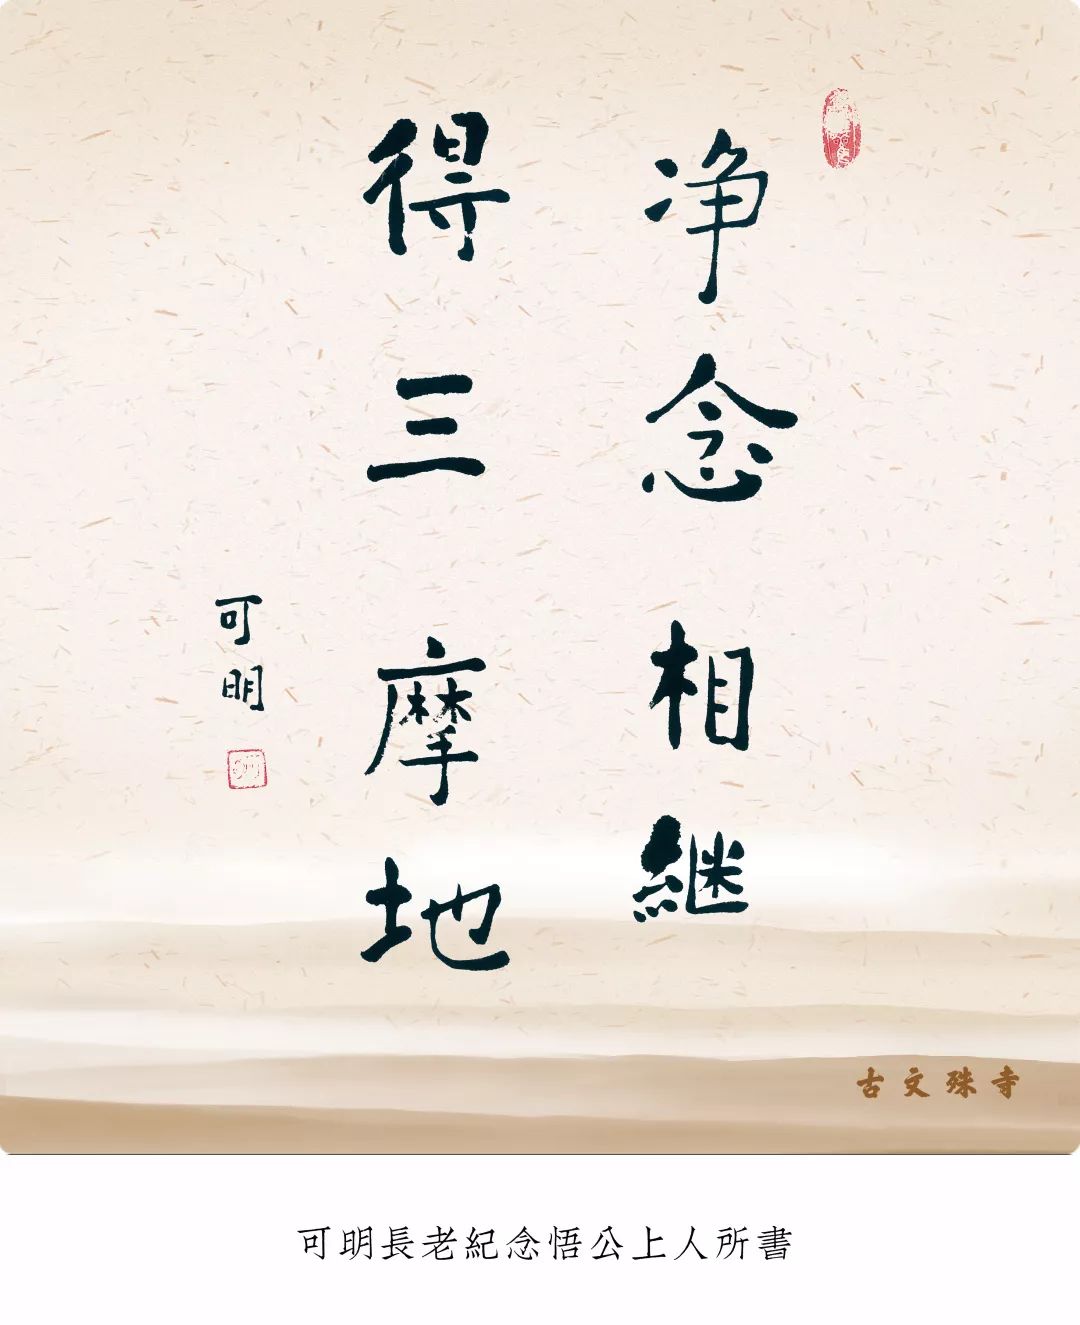 净念相継
得三摩地
可明
古文殊寺
可明長老紀念悟公上人所書